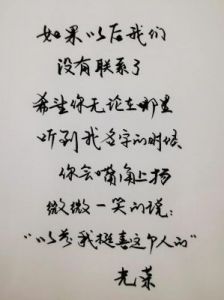 如果以后我们
没有联系了
希望你无论在哪里
听到我名字的时候
你会嘴角上扬
微微一笑的说：
“以前我挺喜这个人的”
光荣